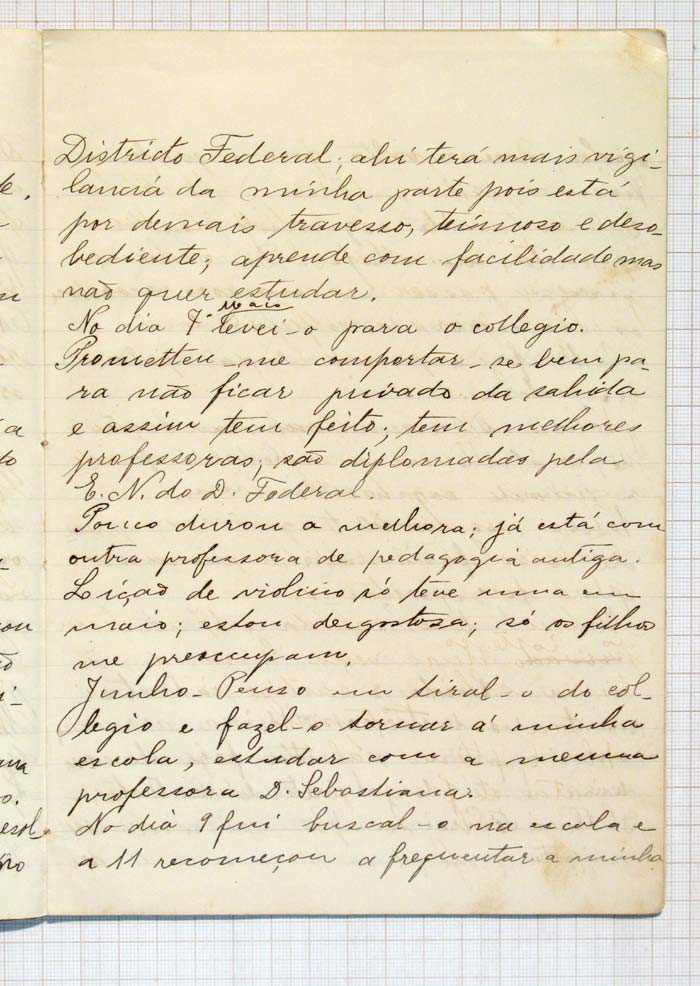 Districto Federal; ahi terá mais vigi-
lancia da minha parte pois está
por demais travesso, teimoso e deso-
bediente; aprende com facilidade mas
não quer estudar.
Maio
No dia 7 levei-o para o collegio.
Prometteu-me comportar-se bem pa-
ra não ficar privado da sahida
e assim tem feito; tem melhores
professoras; são diplomadas pela
E. N. do D. Federal.
Pouco durou a melhora; já está com
outra professora de pedagogia antiga.
Lição de violino só teve uma em
maio; estou desgostosa; só os filhos
me preoccupam.
Junho- Penso em tiral-o do col-
legio e fazel-o tornar á minha
escola, estudar com a mesma
professora D. Sebastiana.
No dia 9 fui buscal-o na escola e
a 11 recomeçou a frequentar a minha